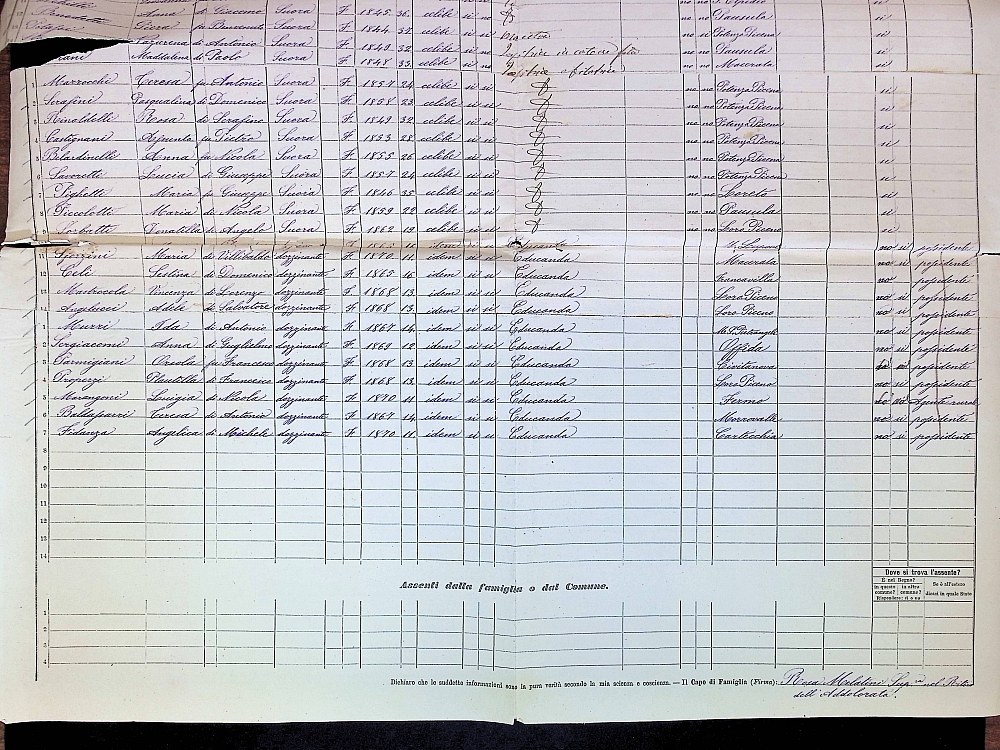 Anna di Giacomo Suora F. 1845 36 celibe si no Pausula si
fu Suora F. 1844 37 celibe si si Maestra no si Potenza Picena si
di Antonio Suora F. 1849 32 celibe si no no no Pausula si
Maddalena di Paolo Suora F. 1848 33 celibe si no no no Macerata si
1 Marrocchi Teresa fu Antonio Suora F. 1857 24 celibe si si no no Potenza Picena si
2 Serafini Pasqualina di Domenico Suora F. 1858 23 celibe si si no no Potenza Picena si
3 Rinaldelli Rosa di Serafino Suora F. 1849 32 celibe si si no no Potenza Picena si
4 Castignani Assunta fu Pietro Suora F. 1853 28 celibe si si no no Potenza Picena si
5 Belardinelli Anna fu Nicola Suora F. 1855 26 celibe si si no no Potenza Picena si
6 Savoretti Lucia di Giuseppe Suora F. 1857 24 celibe si si no no Potenza Picena si
7 Pighetti Maria fu Giuseppe Suora F. 1846 35 celibe si si no no Loreto si
8 Piccolotti Maria di Nicola Suora F. 1859 22 celibe si si no no Pausula si
9 Sorbatti Donatilla di Angelo Suora F. 1862 19 celibe si si no no Loro Piceno si
Educanda no si possidente
11 Sforzini Maria di Villibaldo dozzinante F. 1870 11 idem si si Educanda Macerata no si possidente
12 Celi Sestina di Domenico dozzinante F. 1865 16 idem si si Educanda Francavilla no si possidente
13 Mastrocola Vincenza di Lorenzo dozzinante F. 1868 13 idem si si Educanda Loro Piceno no si possidente
14 Angelucci Adele di Salvatore dozzinante F. 1868 13 idem si si Educanda Loro Piceno no si possidente
1 Murri Ida di Antonio dozzinante F. 1867 14 idem si si Educanda no si possidente
2 Sergiacomi Anna di Guglielmo dozzinante F. 1869 12 idem si si Educanda Offida no si possidente
3 Parmigiani Orsola fu Francesco dozzinante F. 1868 13 idem si si Educanda Civitanova possidente
4 Properzi Plautilla di Francesco dozzinante F. 1868 13 idem si si Educanda Loro Piceno no si possidente
5 Marangoni Luigia di Nicola dozzinante F. 1870 11 idem si si Educanda Fermo Agente rurale
6 Baldasarri Teresa di Antonio dozzinante F. 1867 14 idem si si Educanda Morrovalle no si possidente
7 Fidanza Angelica di Michele dozzinante F. 1870 11 idem si si Educanda no si possidente
8
9
10
11
12
13
14
Assenti dalla famiglia o dal Comune.
Dove si trova l'assente?
È nel Regno?
in questo comune? in altro comune?
Rispondere: sì o no
Se è all'estero
dicasi in quale Stato
1
2
3
4
Dichiaro che le suddette informazioni sono la pura verità secondo la mia scienza e coscienza. — Il Capo di Famiglia (Firma): Rosa Melatini Sup.ra
dell'Addolorata.